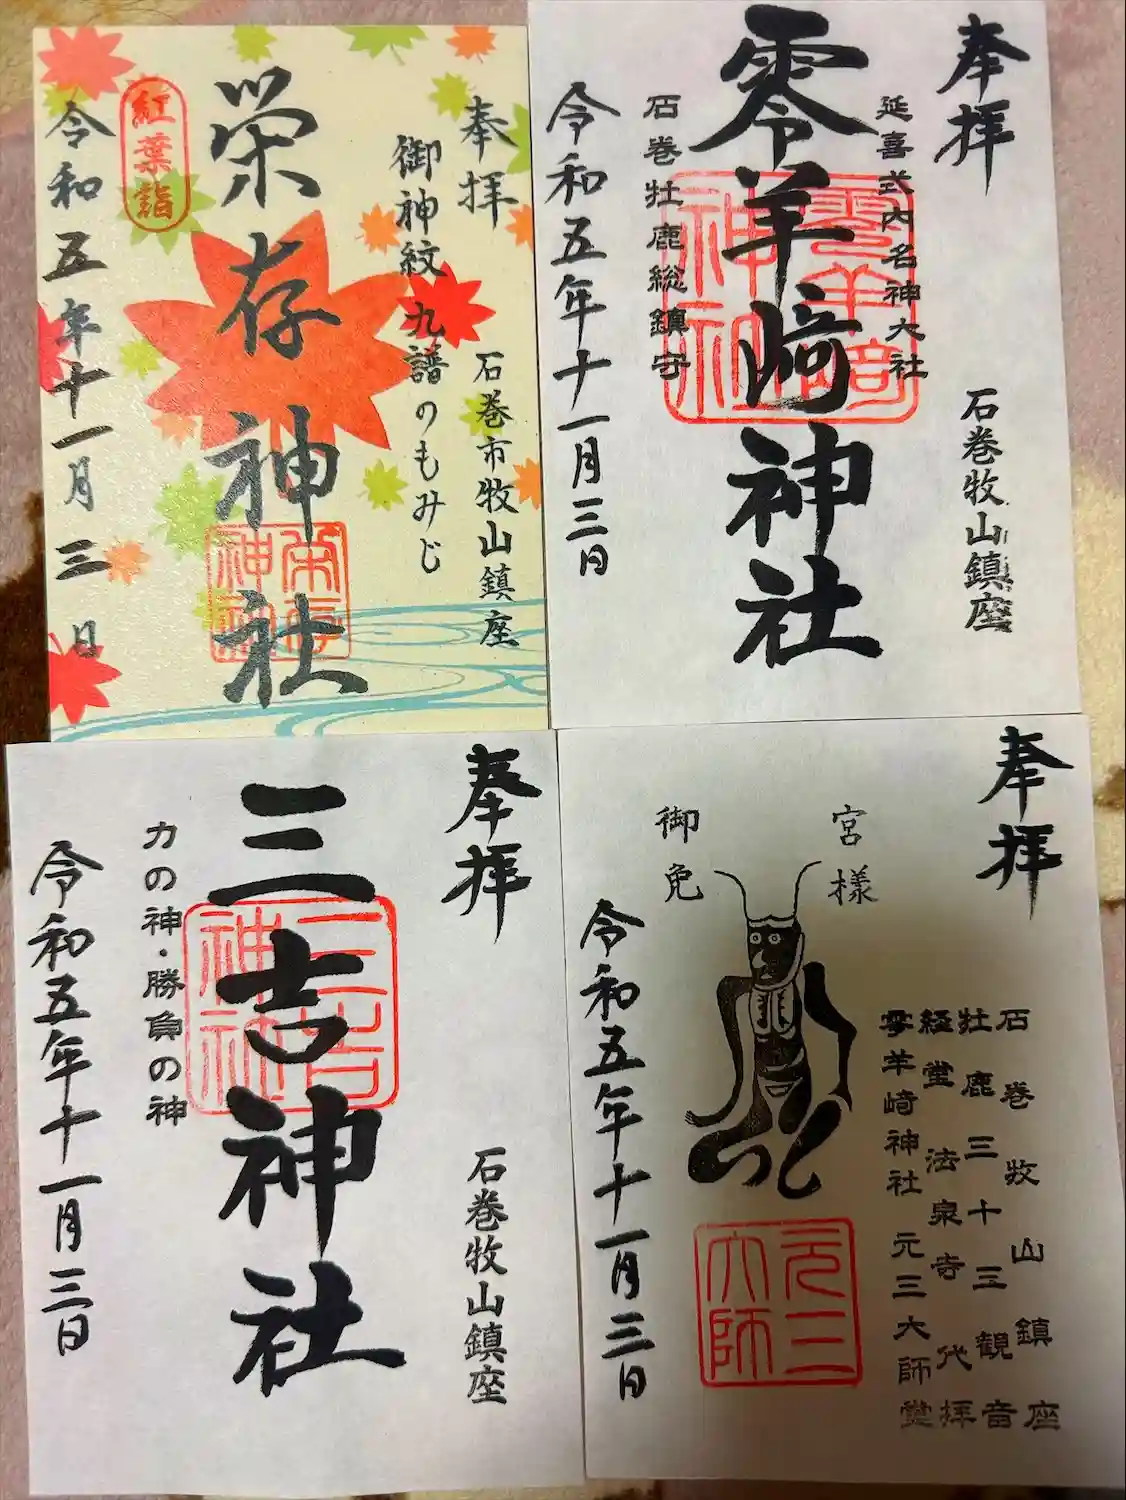 奉拝
石巻市牧山鎮座
御神紋 九譜のもみじ
栄存神社
栄存神社
紅葉詣
令和五年十一月三日
奉拝
石巻牧山鎮座
延喜式内名神大社
零羊崎神社
零羊崎神社
石巻牡鹿総鎮守
令和五年十一月三日
奉拝
石巻牧山鎮座
三吉神社
三吉神社
力の神・勝負の神
令和五年十一月三日
奉拝
石巻牧山鎮座
牡鹿三十三観音
経堂 法泉寺代拝
零羊崎神社 元三大師堂
宮様
御免
元三大師
令和五年十一月三日